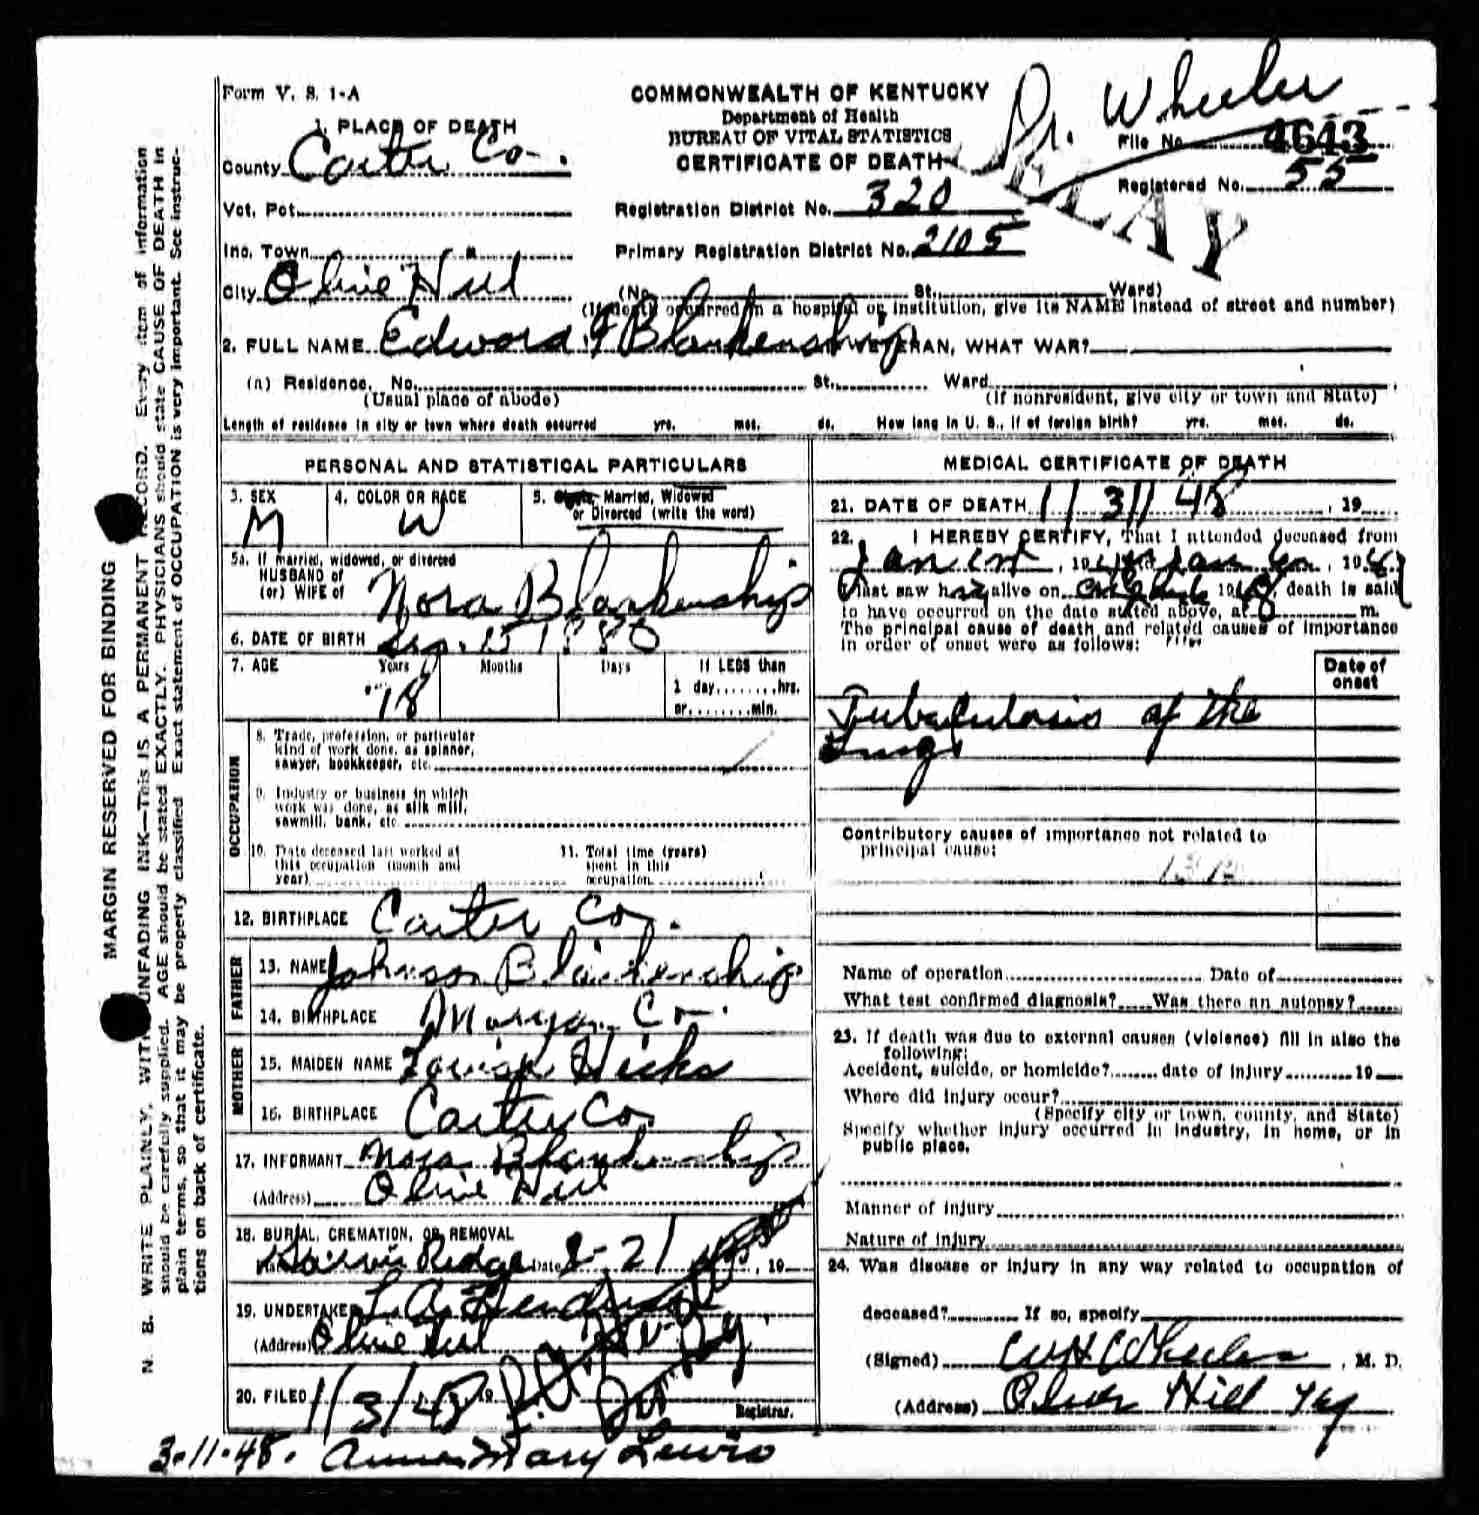 Form V. S. 1-A
COMMONWEALTH OF KENTUCKY
Department of Health
BUREAU OF VITAL STATISTICS
CERTIFICATE OF DEATH
Dr. Wheeler
DELAY
File No. 4643
Registered No. 55
1. PLACE OF DEATH
County Carter Co.
Vot. Pot.
Inc. Town
City Olive Hill
Registration District No. 320
Primary Registration District No. 2105
(No. St., Ward)
(If death occurred in a hospital or institution, give its NAME instead of street and number)
2. FULL NAME Edward F Blankenship VETERAN, WHAT WAR?
(a) Residence. No. St., Ward
(Usual place of abode) (If nonresident, give city or town and State)
Length of residence in city or town where death occurred yrs. mos. ds. How long in U. S., if of foreign birth? yrs. mos. ds.
PERSONAL AND STATISTICAL PARTICULARS
3. SEX M
4. COLOR OR RACE W
5. Single, Married, Widowed
or Divorced (write the word)
5a. If married, widowed, or divorced
HUSBAND of
(or) WIFE of Nora Blankenship
6. DATE OF BIRTH 15 1880
7. AGE Years Months Days If LESS than
1 day, hrs.
or min.
OCCUPATION
8. Trade, profession, or particular
kind of work done, as spinner,
sawyer, bookkeeper, etc.
9. Industry or business in which
work was done, as silk mill,
sawmill, bank, etc.
10. Date deceased last worked at
this occupation (month and
year)
11. Total time (years)
spent in this
occupation
12. BIRTHPLACE Carter Co.
FATHER
13. NAME Johnson Blankenship
14. BIRTHPLACE Morgan Co.
MOTHER
15. MAIDEN NAME Louisa Hicks
16. BIRTHPLACE Carter Co
17. INFORMANT Nora Blankenship
(Address) Olive Hill
18. BURIAL, CREMATION, OR REMOVAL
Ridge Date 19
19. UNDERTAKER L. A.
(Address) Olive Hill
20. FILED 1/3/48 19
Registrar.
3-11-48. Mary Lewis
MEDICAL CERTIFICATE OF DEATH
21. DATE OF DEATH 1/3/1 48, 19
22. I HEREBY CERTIFY, That I attended deceased from
Jan
I last saw h alive on 1948, death is said
to have occurred on the date stated above, at m.
The principal cause of death and related causes of importance
in order of onset were as follows:
Date of
onset
Tuberculosis of the
lungs
Contributory causes of importance not related to
principal cause:
Name of operation Date of
What test confirmed diagnosis? Was there an autopsy?
23. If death was due to external causes (violence) fill in also the
following:
Accident, suicide, or homicide? date of injury 19
Where did injury occur?
(Specify city or town, county, and State)
Specify whether injury occurred in industry, in home, or in
public place.
Manner of injury
Nature of injury
24. Was disease or injury in any way related to occupation of
deceased? If so, specify
(Signed) W H Wheeler, M. D.
(Address) Olive Hill Ky
MARGIN RESERVED FOR BINDING
N. B. WRITE PLAINLY, WITH UNFADING INK—This IS A PERMANENT RECORD. Every item of information
should be carefully supplied. AGE should be stated EXACTLY. PHYSICIANS should state CAUSE OF DEATH in
plain terms, so that it may be properly classified. Exact statement of OCCUPATION is very important. See instruc-
tions on back of certificate.